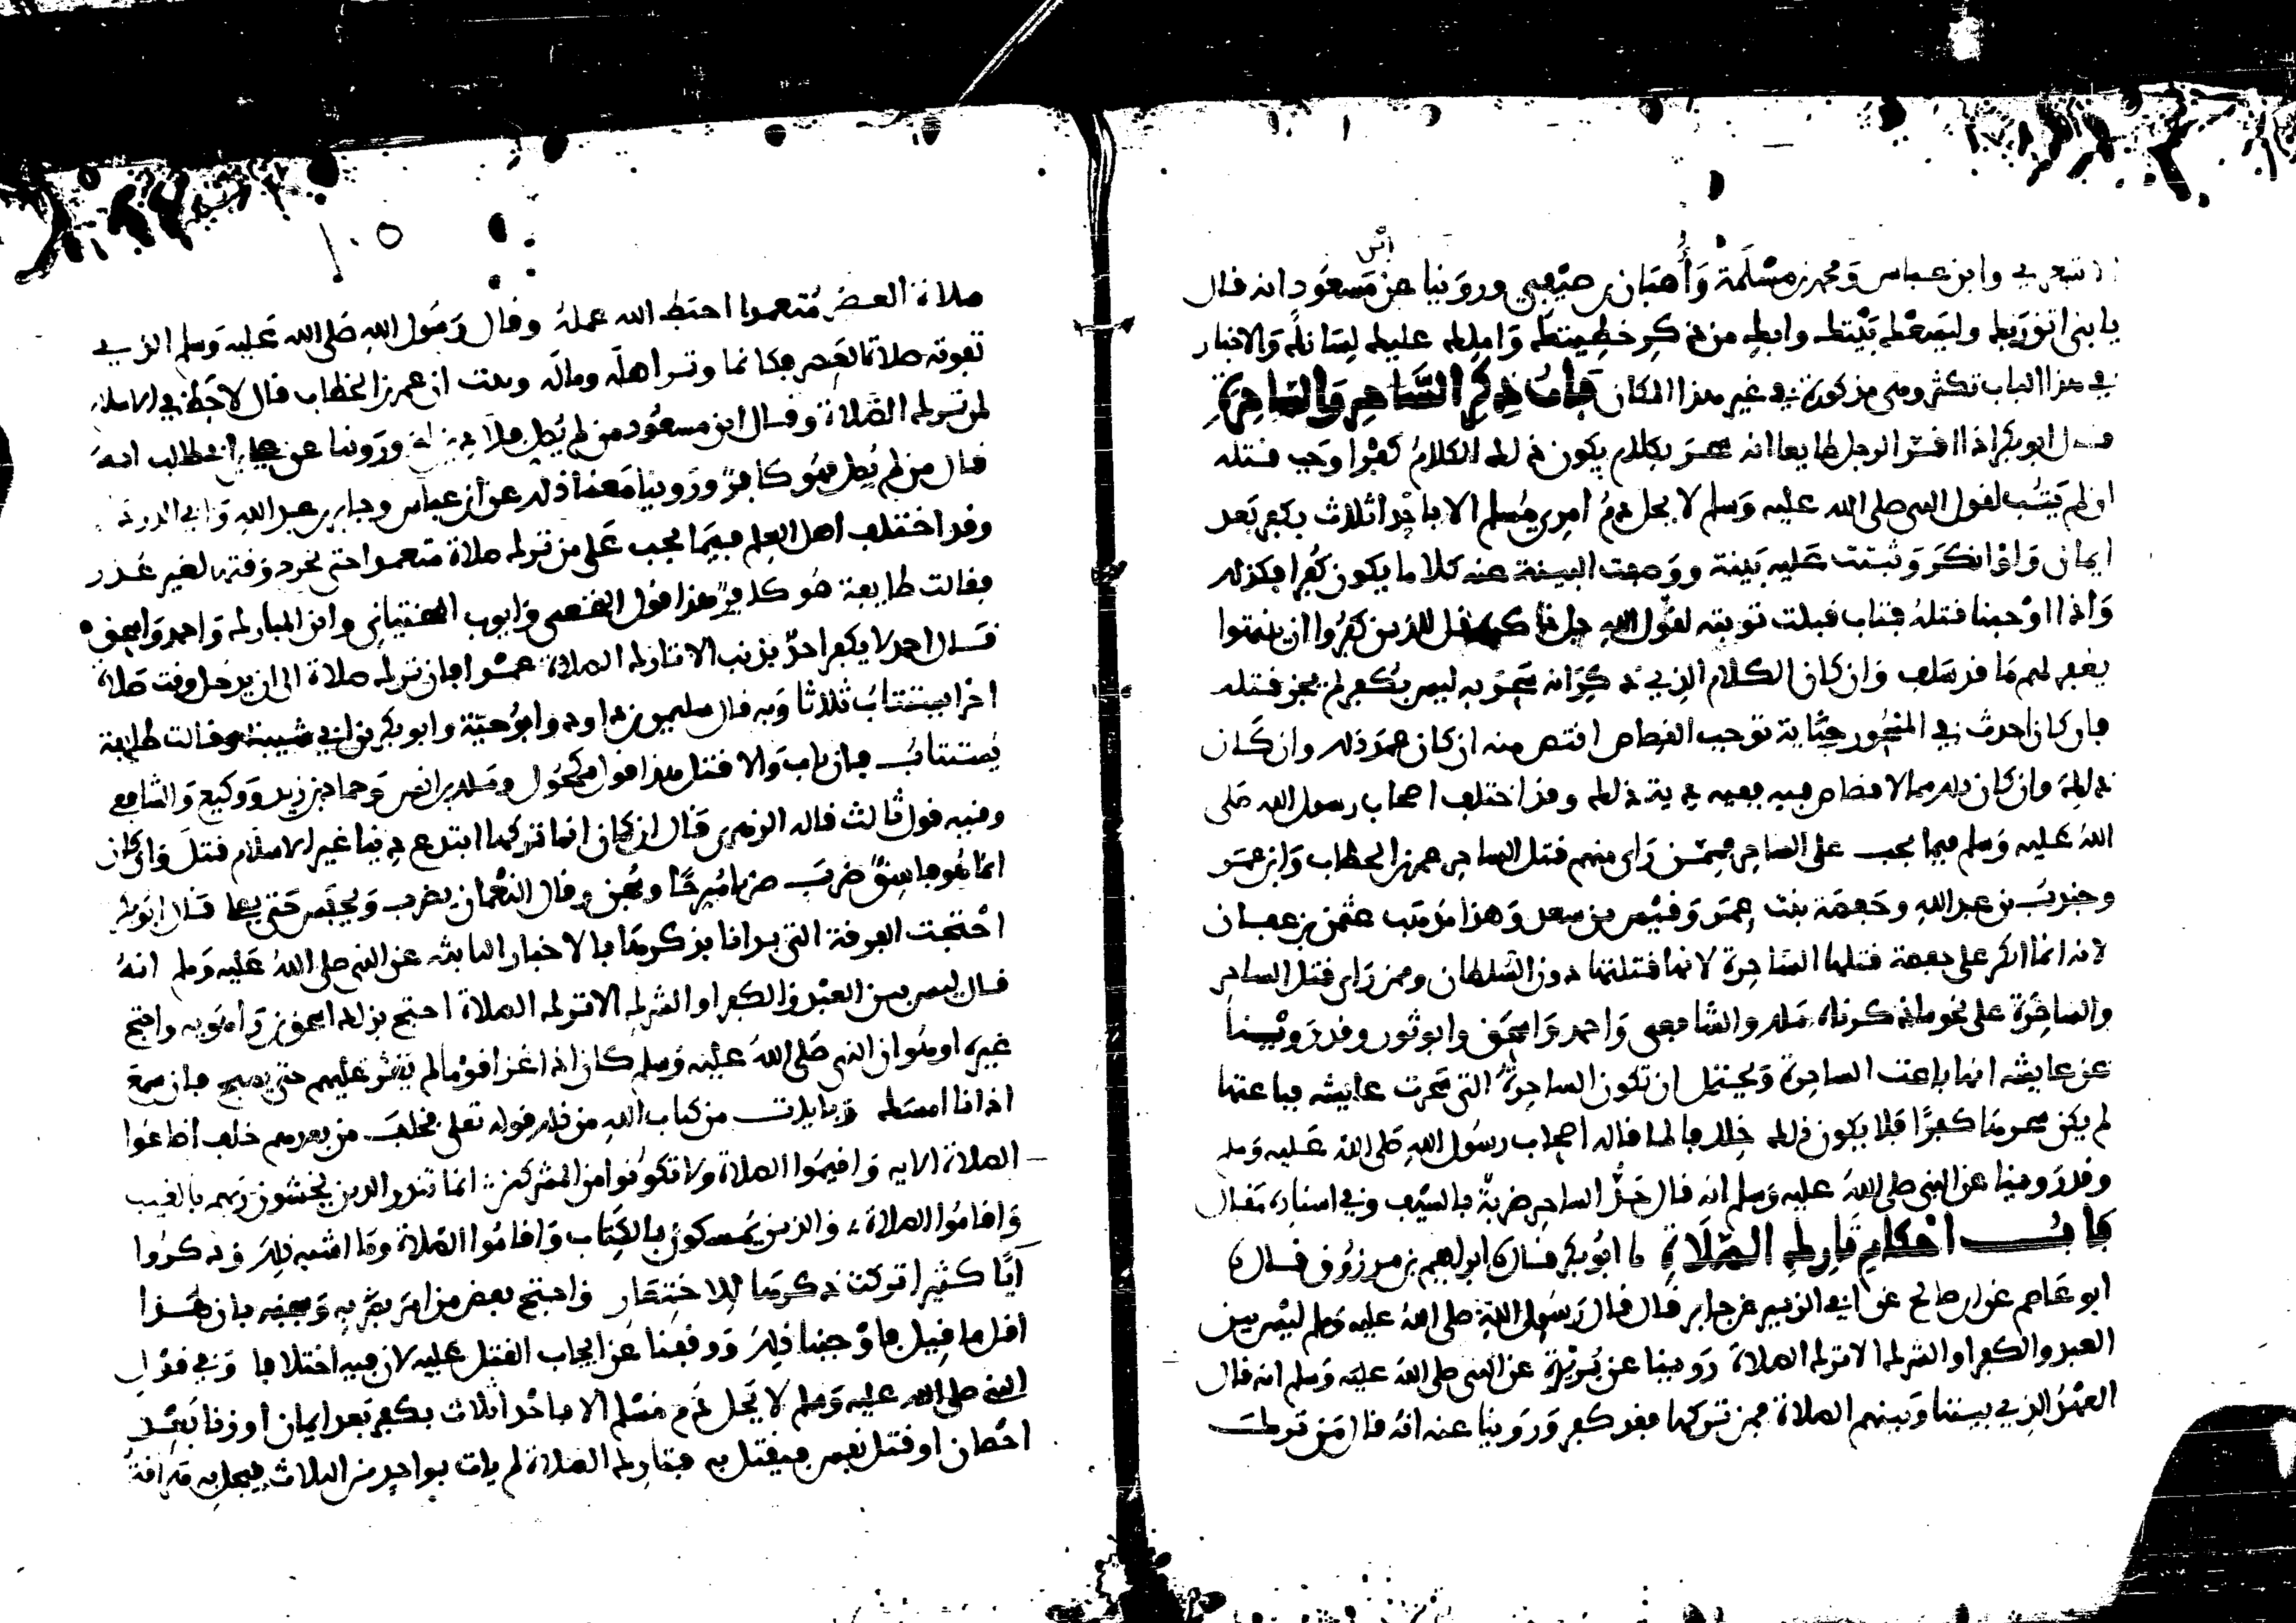 الاشعري وابن عباس ومحمد بن مسلمة وأهبان بن صيفي وروينا عن ابن مسعود انه قال
يا بني اتق ربك وليسعك بيتك وابك من ذكر خطيئتك واملك عليك لسانك والاخبار
في هذا الباب تكثر وهي مذكورة في غير هذا المكان باب ذكر الساحر والساحرة
قال ابو بكر اذا اقر الرجل طايعا انه سحر بكلام يكون ذلك الكلام كفرا وجب قتله
ان لم يتب لقول النبي صلى الله عليه وسلم لا يحل دم امرئ مسلم الا باحدا ثلاث بكفر بعد
ايمان وان انكر وثبتت عليه بينة ووصفت البينة عنه كلاما يكون كفرا فكذلك
واذا اوجبنا قتله فتاب قبلت توبته لقول الله جل ذكره قل للذين كفروا ان ينتهوا
يغفر لهم ما قد سلف وان كان الكلام الذي ذكر انه سحر به ليس بكفر لم يجز قتله
فان كان احدث في المسحور جناية توجب القصاص اقتص منه ان كان عمد ذلك وان كان
ذلك وان كان مما لا قصاص فيه ففيه دية ذلك وقد اختلف اصحاب رسول الله صلى
الله عليه وسلم فيما يجب على الساحر فممن راى منهم قتل الساحر عمر بن الخطاب وابن عمر
وجندب بن عبد الله وحفصة بنت عمر وقيس بن سعد وهذا مذهب عثمن بن عفان
لانه انما انكر على حفصة قتلها الساحرة لانها قتلتها دون السلطان وممن راى قتل الساحر
والساحرة على نحو ما ذكرناه ملك والشافعي واحمد واسحق وابو ثور وقد روينا
عن عايشه انها باعت الساحرة ويحتمل ان تكون الساحرة التي سحرت عايشه فباعتها
لم يكن سحرها كفرا فلا يكون ذلك خلافا لما قاله اصحاب رسول الله صلى الله عليه وسلم
وقد روينا عن النبي صلى الله عليه وسلم انه قال حد الساحر ضربة بالسيف وفي اسناده مقال
باب احكام تارك الصلاة نا ابو بكر قال نا ابراهيم بن مرزوق قال نا
ابو عاصم عن صالح عن ابي الزبير عن جابر قال قال رسول الله صلى الله عليه وسلم ليس بين
العبد والكفر او الشرك الا ترك الصلاة روينا عن بريدة عن النبي صلى الله عليه وسلم انه قال
العهد الذي بيننا وبينهم الصلاة فمن تركها فقد كفر وروينا عنه انه قال من ترك
١٠٥
صلاة العصر متعمدا احبط الله عمله وقال رسول الله صلى الله عليه وسلم الذي
تفوته صلاة العصر فكانما وتر اهله وماله وثبت ان عمر بن الخطاب قال لا حظ في الاسلام
لمن ترك الصلاة وقال ابن مسعود من لم يصل فلا دين له وروينا عن علي بن ابي طالب انه
قال من لم يصل فهو كافر وروينا معنا ذلك عن ابن عباس وجابر بن عبد الله وابي الدرداء
وقد اختلف اهل العلم فيما يجب على من ترك صلاة متعمدا حتى يخرج وقتها لغير عذر
فقالت طايفة هو كافر هذا قول النخعي وايوب السختياني وابن المبارك واحمد واسحق
قال احمد لا يكفر احد بذنب الا تارك الصلاة عمدا فان ترك صلاة الى ان يدخل وقت صلاة
اخرا يستتاب ثلاثا وبه قال سليمن بن داود وابو خيثمة وابو بكر بن ابي شيبة وقالت طايفة
يستتاب فان تاب والا قتل هذا قول مكحول وملك بن انس وحماد بن زيد ووكيع والشافعي
وفيه قول ثالث قاله الزهري قال ان كان انما تركها ابتدع دينا غير الاسلام قتل وان كان
انما هو فاسق ضرب ضربا مبرحا وسجن وقال النعمان يضرب ويحبس حتى يصلي قال ابو بكر
احتجت الفرقة التي بدانا بذكرها بالاخبار الثابته عن النبي صلى الله عليه وسلم انه
قال ليس بين العبد والكفر او الشرك الا ترك الصلاة احتج بذلك اسحق بن راهويه واحتج
غيره او هو ان النبي صلى الله عليه وسلم كان اذا غزا قوما لم يغر عليهم حتى يصبح فان سمع
اذانا امسك وبايات من كتاب الله من ذلك قوله تعلى فخلف من بعدهم خلف اضاعوا
الصلاة الايه واقيموا الصلاة ولا تكونوا من المشركين انما تنذر الذين يخشون ربهم بالغيب
واقاموا الصلاة والذين يمسكون بالكتاب واقاموا الصلاة وما اشبه ذلك وذكروا
ايا كثيرا تركت ذكرها للاختصار واحتج بعض من امر بضربه وسجنه بان هذا
اقل ما قيل فاوجبنا ذلك ووقفنا عن ايجاب القتل عليه لان فيه اختلافا وفي قول
النبي صلى الله عليه وسلم لا يحل دم مسلم الا باحدا ثلاث بكفر بعد ايمان او زنا بعد
احصان او قتل نفس فيقتل به فتارك الصلاة لم يات بواحد من الثلاث فيحل به دمه